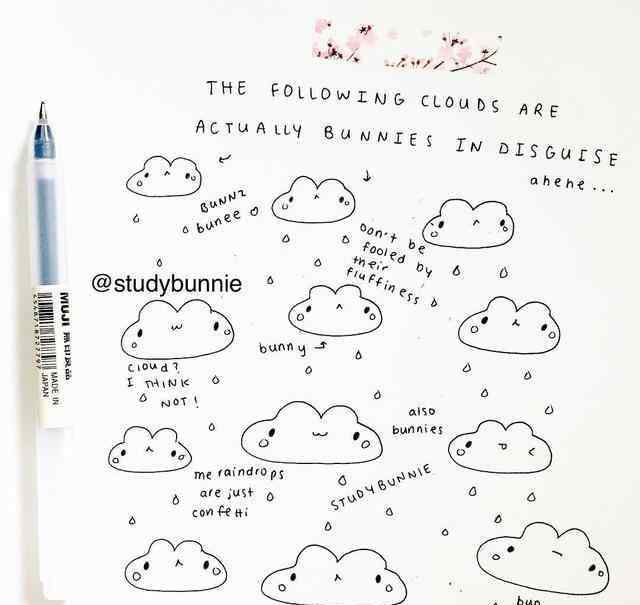 THE FOLLOWING CLOUDS ARE
ACTUALLY BUNNIES IN DISGUISE
ahehe...
BUNNZ
bunee
Don't be
fooled by
their
fluffiness
@studybunnie
bunny
MUJI
無印良品
MADE IN
JAPAN
cloud?
I THINK
NOT!
also
bunnies
me raindrops
are just
confetti
STUDYBUNNIE
bun